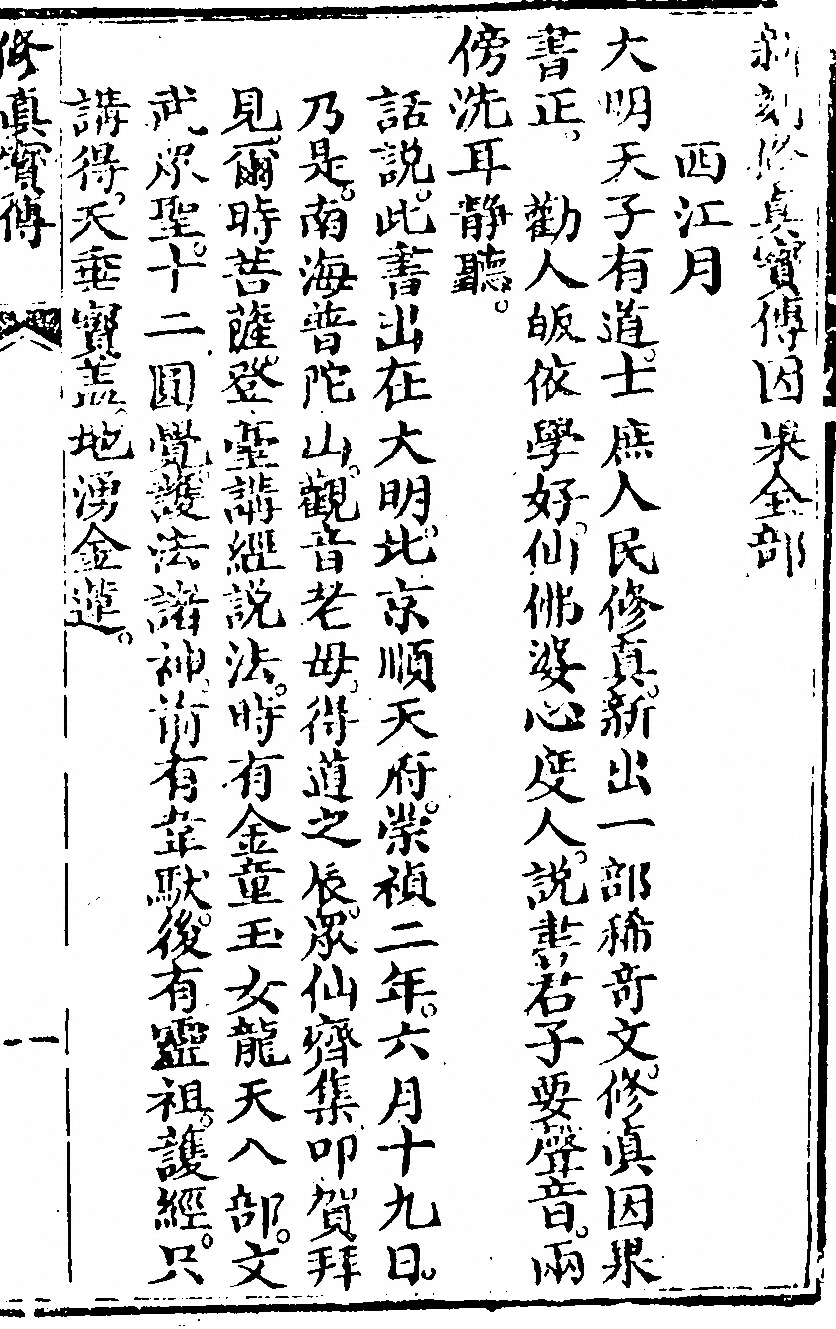 新刻修真寳傳因果全部
西江月
大明天子有道。士庶人民修真。新出一部稀竒文。修真因果
書正。 勸人皈依學好。仙佛婆心度人。說書君子要聲音。兩
傍洗耳靜聽。
話說。此書出在大明。北京順天府。崇禎二年。六月十九日。
乃是。南海普陀山。觀音老母。得道之辰。眾仙齊集叩賀拜
見。爾時菩薩。登臺講經説法。時有金童玉女龍天八部。文
武眾聖。十二圓覺。護法諸神。前有韋馱。後有靈祖。護經。只
講得。天垂寳盖。地湧金蓮。
修真寳傳
一